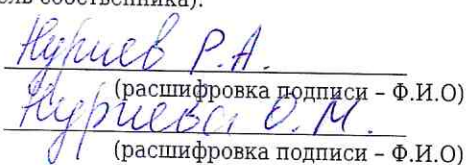 ль собственника).
Нуриев Р.А.
(расшифровка подписи – Ф.И.О)
Нуриева О.М.
(расшифровка подписи – Ф.И.О)